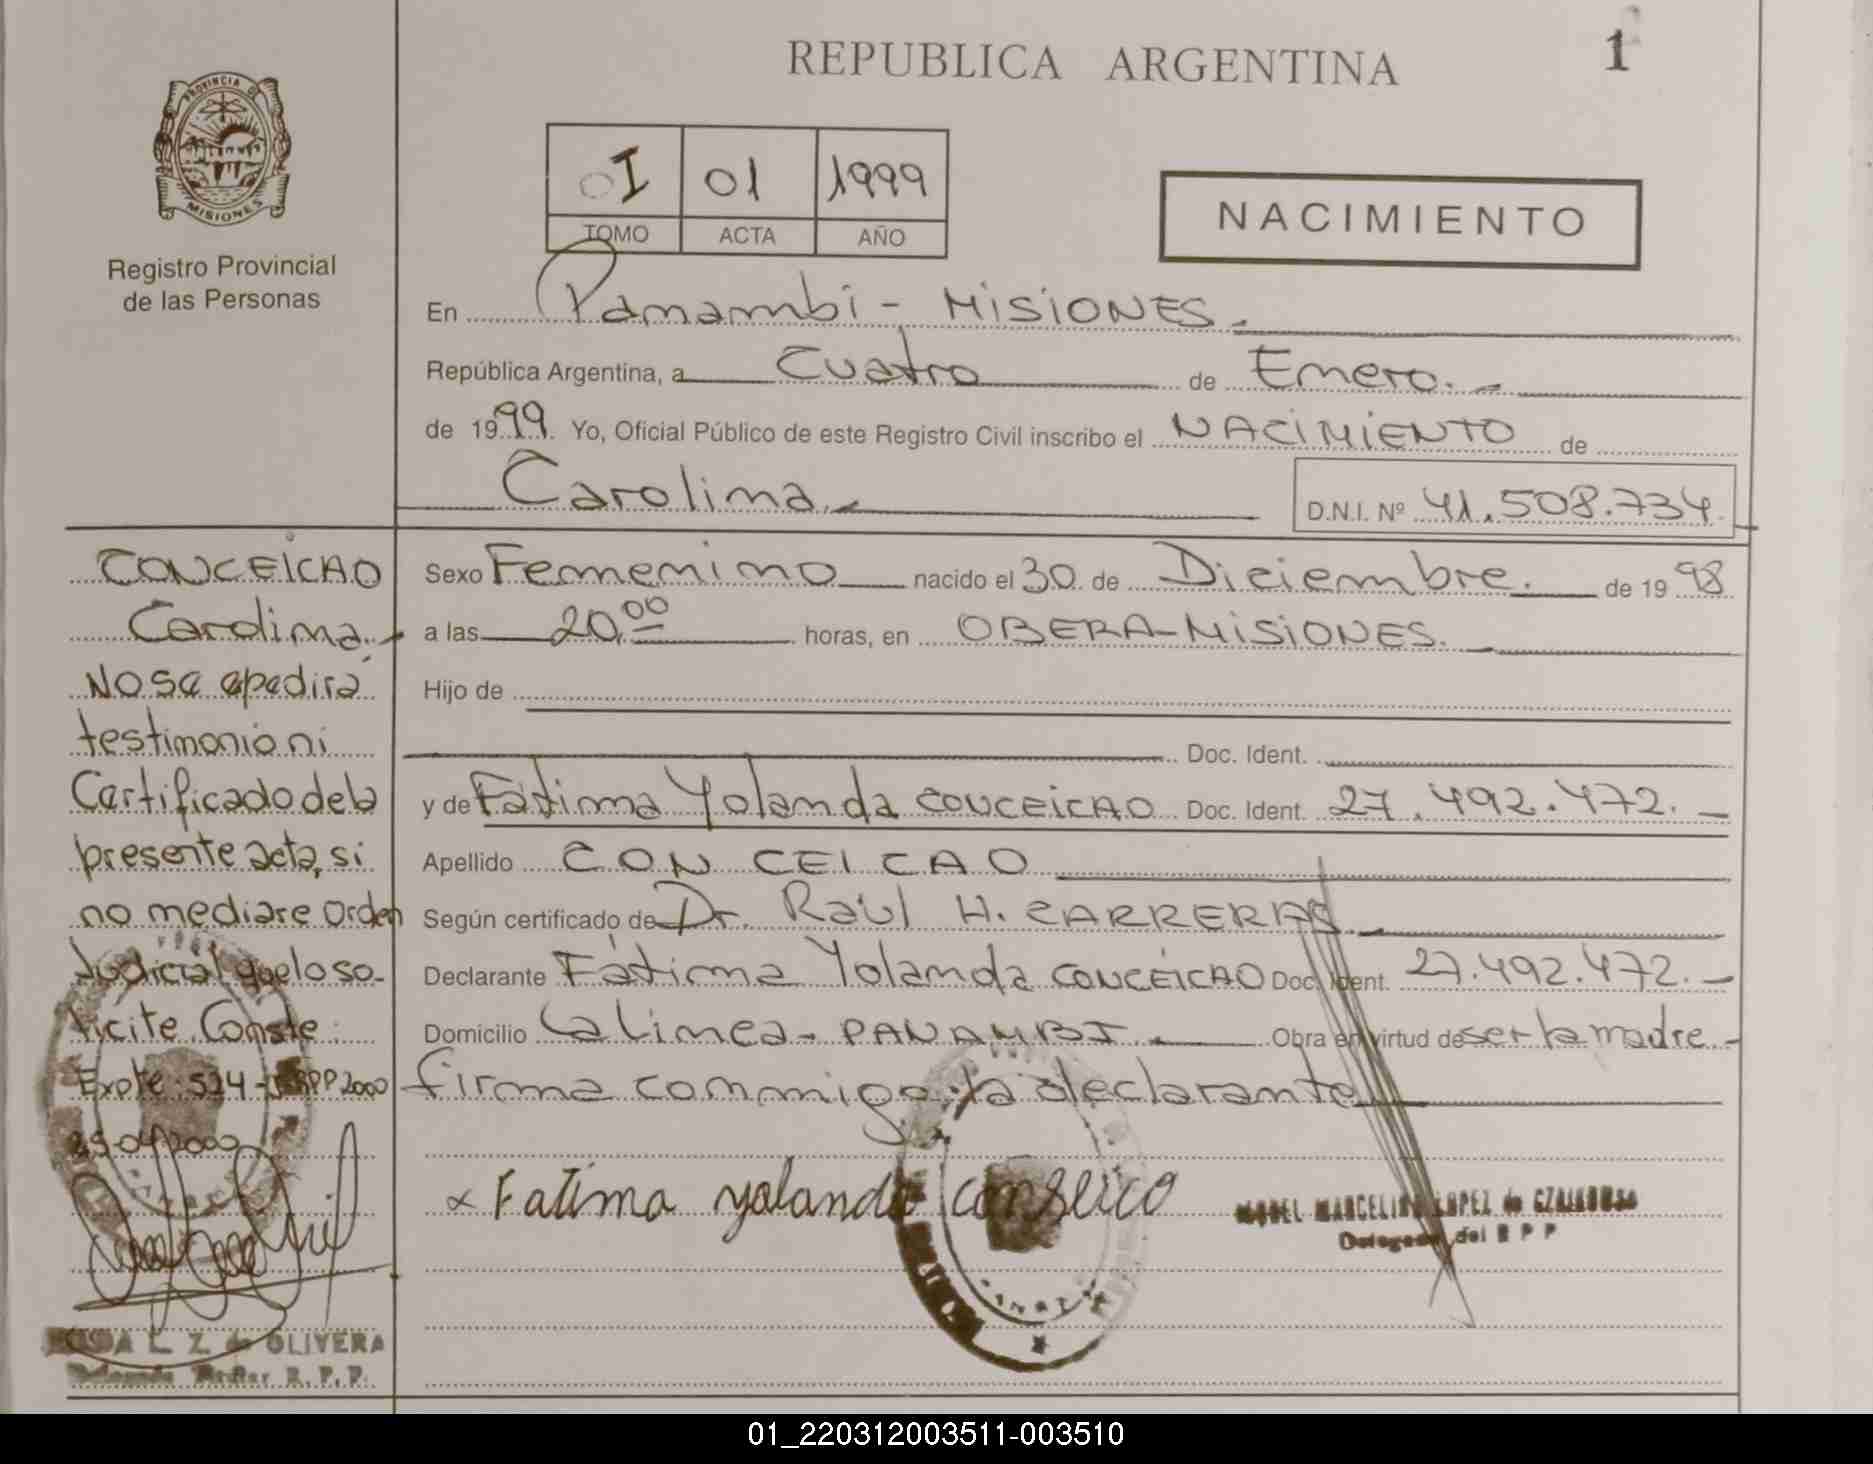 REPUBLICA ARGENTINA
1
PROVINCIA DE
MISIONES
Registro Provincial
de las Personas
I 01 1999
TOMO ACTA AÑO
NACIMIENTO
En Panambi - MISIONES.
República Argentina, a Cuatro de Enero.
de 1999. Yo, Oficial Público de este Registro Civil inscribo el NACIMIENTO de
Carolina.
D.N.I. Nº 41.508.734
CONCEICAO
Carolina.
No se expedirá
testimonio ni
Certificado de la
presente acta, si
no mediare Orden
Judicial que lo so-
licite. Conste:
Expte: 524 - RPP 2000
25-04-2000
OLIVERA
R.P.P.
Sexo Femenino nacido el 30 de Diciembre. de 19 98
a las 20,00 horas, en OBERA-MISIONES.
Hijo de
Doc. Ident.
y de Fátima Yolanda CONCEICAO Doc. Ident. 27.492.472.-
Apellido CONCEICAO
Según certificado de Dr. Raúl H. CARRERAS.
Declarante Fátima Yolanda CONCEICAO Doc. Ident. 27.492.472.-
Domicilio La Linea - PANAMBI. Obra en virtud de ser la madre -
firma conmigo la declarante
x Fatima yolanda conseico
MARCELINA LOPEZ de
Delegada del R P P
01_220312003511-003510